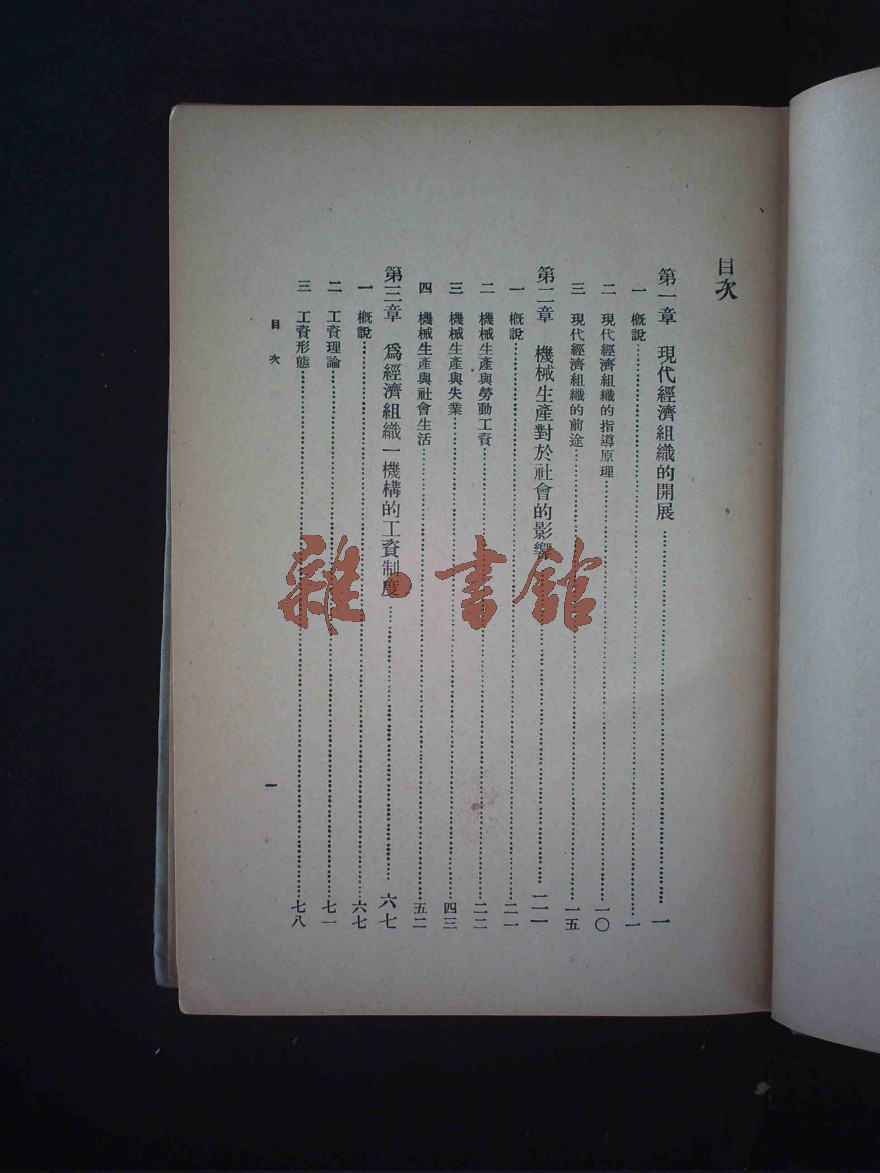 目次
第一章 現代經濟組織的開展 一
一 概說 一
二 現代經濟組織的指導原理 一〇
三 現代經濟組織的前途 一五
第二章 機械生產對於社會的影響 二一
一 概說 二一
二 機械生產與勞動工資 二二
三 機械生產與失業 四三
四 機械生產與社會生活 五二
第三章 爲經濟組織一機構的工資制度 六七
一 概說 六七
二 工資理論 七一
三 工資形態 七八
目次
一
雜·書館